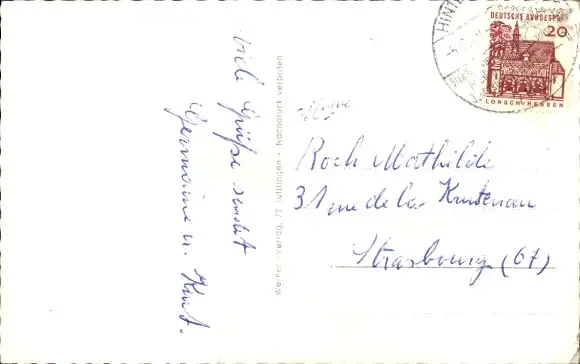 viele Grüße sendet
Germaine u. Kurt.
Werner-Verlag, 72 Tuttlingen - Nachdruck verboten
HINTE
DEUTSCHE BUNDESP
20
LORSCH/HESSEN
Roch Mathilde
31 rue de la Krutenau
Strasbourg (67)